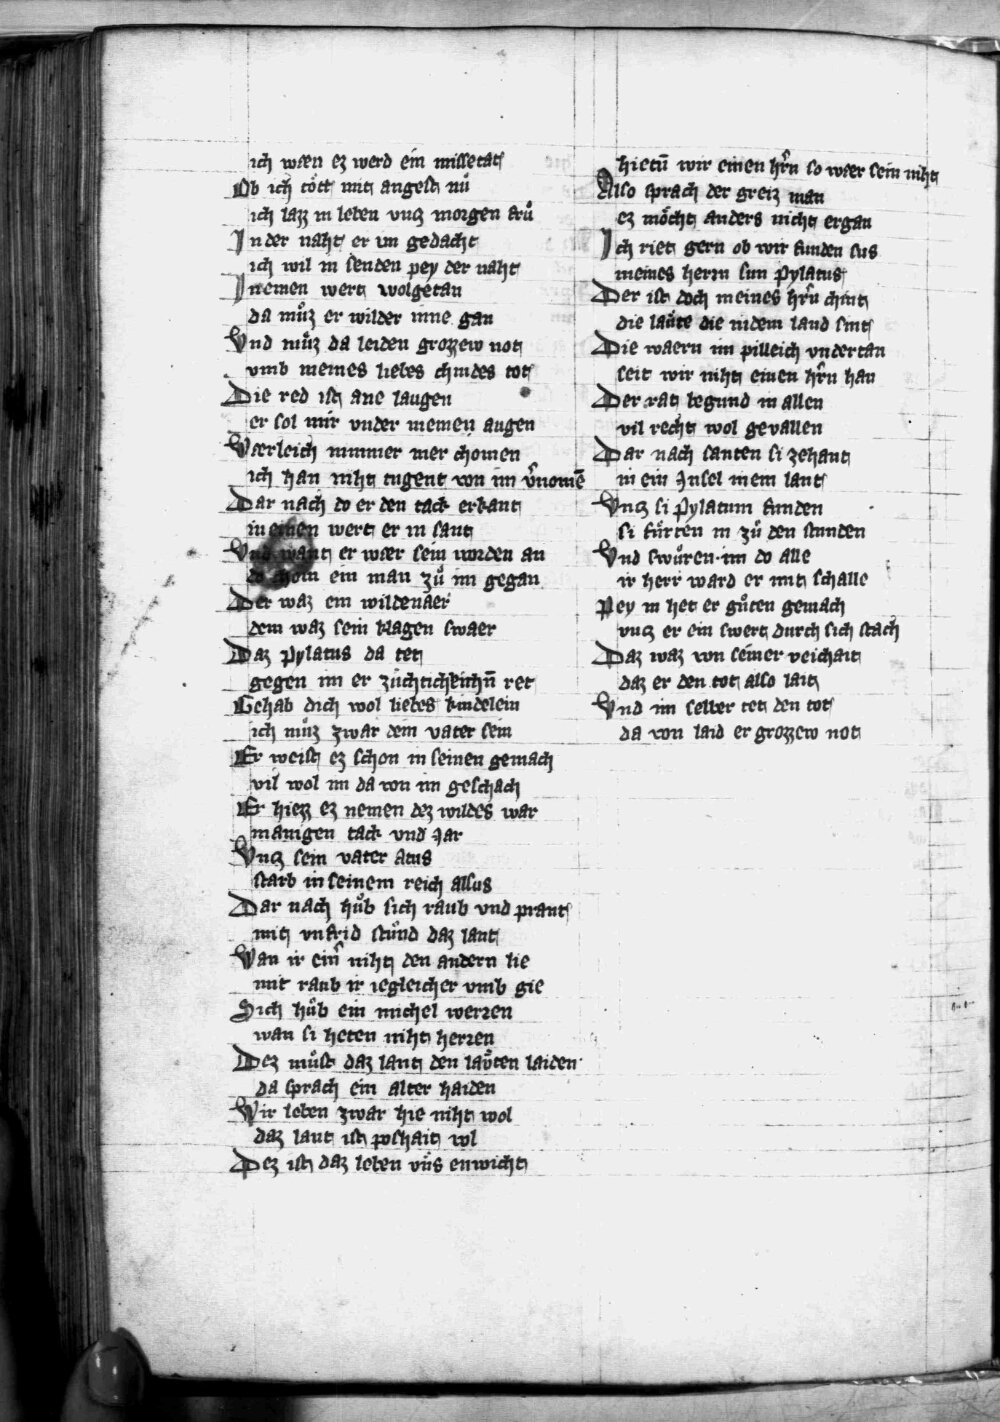 ich wæn ez werd ein missetat
Ob ich toͤtt mit angest nuͦ
ich lazz in leben vntz morgen fruͦ
In der naht er im gedacht
ich wil in senden pey der naht
In einen wert wolgetan
da muͦz er wilder inne gan
Vnd muͦz da leiden grozzew not
vmb meines liebes chindes tot
Die red ist ane laugen
er sol mir vnder meinen augen
Værleich nimmer mer chomen
ich han niht tugent von im v̾nomē
Dar nach do er den tack erkant
in einen wert er in sant
Vnd want er wær sein worden an
do chom ein man zuͦ im gegan
Der waz ein wildenaer
dem waz sein klagen swaer
Daz pylatus da tet
gegen im er zuͤchtichleichn̄ ret
Gehab dich wol liebes kindelein
ich muͦz zwar dein vater sein
Er weist ez schon in seinen gemach
vil wol im da von im geschach
Er hiezz ez nemen dez wildes war
manigen tack vnd Jar
Vntz sein vater atus
starb in seinem reich allsus
Dar nach huͦb sich raub vnd prant
mit vnfrid stuͦnd daz lant
Wan ir ein̾ niht den andern lie
mit raub ir iegleicher vmb gie
Sich huͦb ein michel werren
wan si heten niht herren
Dez muͦst daz lant den laͤuten laiden
da sprach ein alter haiden
Wir leben zwar hie niht wol
daz lant ist poshait vol
Dez ist daz leben vns enwicht
hietn̄ wir einen hr̄n so wær sein niht
Also sprach der greiz man
ez moͤcht anders nicht ergan
Ich riet gern ob wir funden sus
meines herrn sun Pylatus
Der ist doch meines hr̄n chint
die laͤute die in dem land sint
Die waern im pilleich vndertan
seit wir niht einen hr̄n han
Der rat begund in allen
vil recht wol gevallen
Dar nach santen si zehant
in ein Jnsel in em lant
Vntz si Pylatum funden
si fuͤrten in zuͦ den stunden
Vnd swuͦren im do alle
ir herr ward er mit schalle
Pey in het er guͦten gemach
vntz er ein swert durch sich stach
Daz waz von seiner veichait
daz er den tot also lait
Vnd im selber tet den tot
da von laid er grozzew not